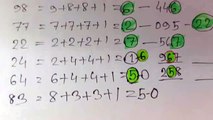 98 = 9+8+8+1 = 6 - 446
77 = 7+7+7+1 = 2 - 095 22
22 = 2+2+2+1 = 7 - 507
24 = 2+4+4+1 = 16 96
64 = 6+4+4+1 = 5 0 258
83 = 8+3+3+1 = 5-0